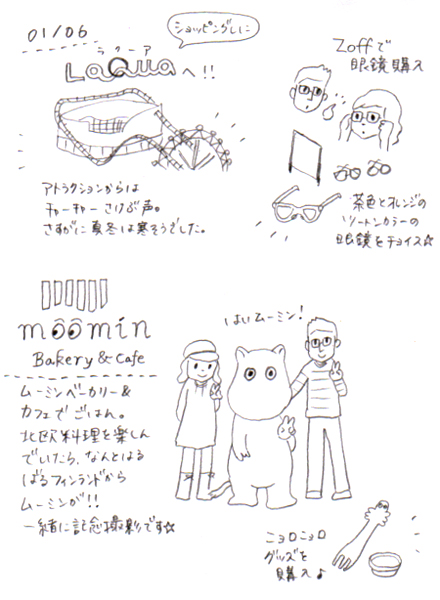 01/06
ショッピングしに
ラクーア
LaQuaへ!!
アトラクションからは
キャーキャーさけぶ声。
さすがに真冬は寒そうでした。
Zoffで
眼鏡購入
茶色とオレンジの
ツートンカラーの
眼鏡をチョイス☆
moomin
Bakery & Cafe
ムーミンベーカリー&
カフェでごはん。
北欧料理を楽しん
でいたら、なんとはる
ばるフィンランドから
ムーミンが!!
一緒に記念撮影です☆
はいムーミン!
ニョロニョロ
グッズを
購入♪